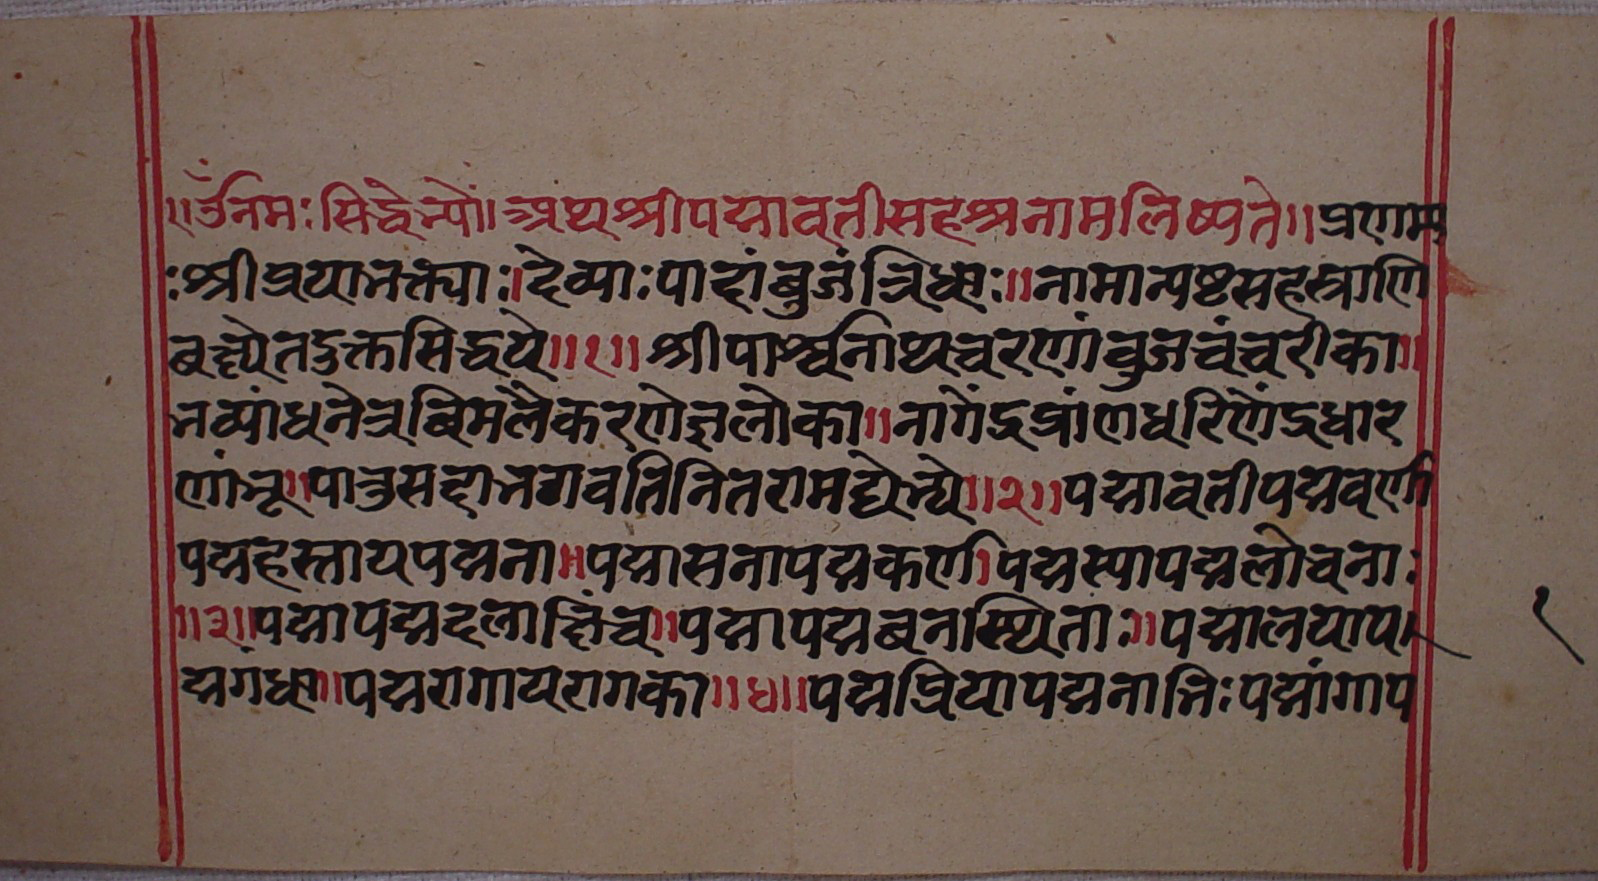 ॥ॐनमःसिद्धेभ्यो॥अथश्रीपद्मावतीसहश्रनामलिष्यते॥प्रणम्य
ःश्रीप्रयाभक्त्याः।देव्याःपादांबुजंत्रिधाः॥नामान्यष्टसहस्त्राणि
बक्ष्येतद्भक्तसिद्धये॥१॥श्रीपार्श्वनाथचरणांबुजचंचरीका॥
भव्यांधनेत्रबिमलैकरणेज्ञलोका॥नागेंद्रप्रांणधरिणेंद्रधार
णांभृ॥पातुसदाभगवतिनितरामघेभ्ये॥२॥पद्मावतीपद्मवर्णा
पद्महस्तायपद्मना॥पद्मासनापद्मकर्णा।पद्मस्यापद्मलोचनाः
॥३॥पद्मापद्मदलाक्षिंच॥पद्मापद्मबनस्थिताः॥पद्मालयाप
द्मगंधा॥पद्मरागायरागका॥४॥पद्मप्रियापद्मनाभिःपद्मांगाप
१